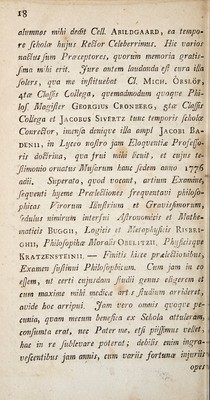 18
alumnos mihi dedit Cell. ABILDGAARD, ea tempo-
re scholæ hujus Rector Celeberrimus. Hic varios
nactus sum Præceptores, quorum memoria gratis-
sima mihi erit. Jure autem laudanda est cura illa
solers, qva me instituebat Cl. MICH. ÖRSLÖF,
4tæ Classis Collega, quemadmodum quoque Phi-
los. Magister GEORGIUS CRONBERG, 5tæ Classis
Collega et JACOBUS SIVERTZ tunc temporis scholæ
Conrector, imensa denique illa ampl JACOBI BA-
DENII, in Lyceo nostro jam Eloqventiæ Professo-
ris doctrina, qva frui mihi licuit, et cujus te-
stimonio ornatus Musarum hanc sedem anno 1776
adii, Superato, quod vocant, artium Examine,
sequenti hyeme Prælectiones frequentavi philoso-
phicas Virorum Illustrium et Gravissimorum,
sedulus nimirum interfui Astronomicis et Mathe-
maticis BUGGII, Logicis et Metaphysicis RIISBRI-
GHII, Philosophiæ Moralis OBELITZII, Physicisque
KRATZENSTEINII. — Finitis hisce prælectionibus,
Examen sustinui Philosophicum. Cum jam in eo
essem, ut certi cujusdam studii genus eligerem et
cum maxime mihi medicæ artis studium arrideret,
avide hoc arripui. Jam vero omnis quoque pe-
cunia, quam mecum benefica ex Schola attuleram,
consumta erat, nec Pater me, etsi piissimus vellet,
hac in re sublevare poterat; debilis enim ingra-
vescentibus jam annis, cum variis fortunæ injuriis
opes